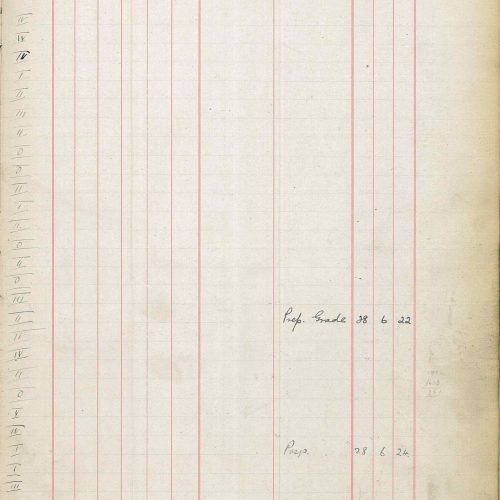 IV
VI
IV
I
II
III
II
0
0
II
I
II
0
II
0
III
II
II
VI
II
0
V
IV
I
I
III
Prep. Grade 28 6 22
Prep. 28 6 24